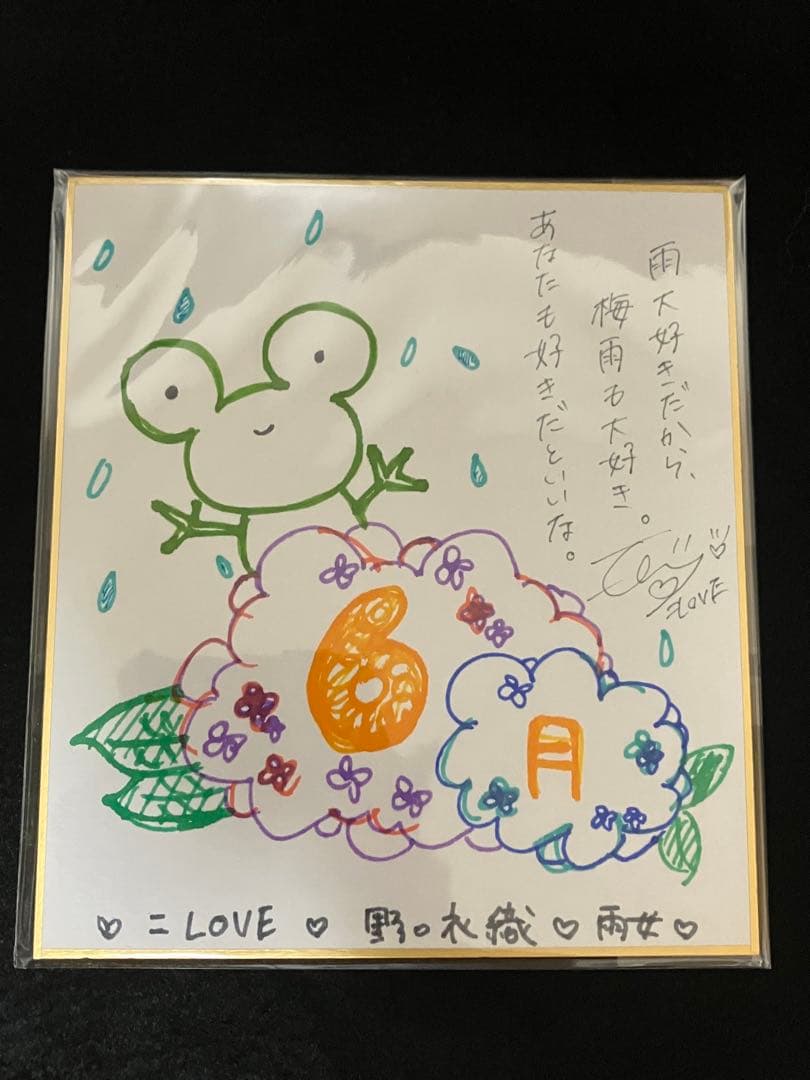 雨大好きだから、
梅雨も大好き。
あなたも好きだといいな。
=LOVE
6月
♡ =LOVE ♡ 野口衣織 ♡ 雨女 ♡